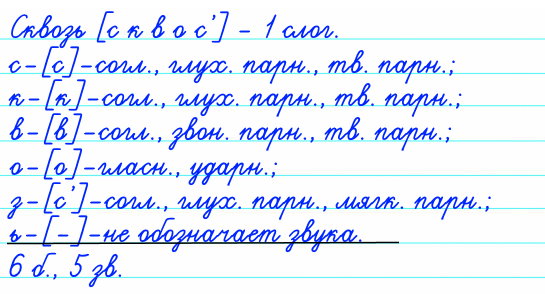 Сквозь [с к в о с'] - 1 слог.
с-[с]-согл., глух. парн., тв. парн.;
к-[к]-согл., глух. парн., тв. парн.;
в-[в]-согл., звон. парн., тв. парн.;
о-[о]-гласн., ударн.;
з-[с']-согл., глух. парн., мягк. парн.;
ь-[-]-не обозначает звука.
6 б., 5 зв.